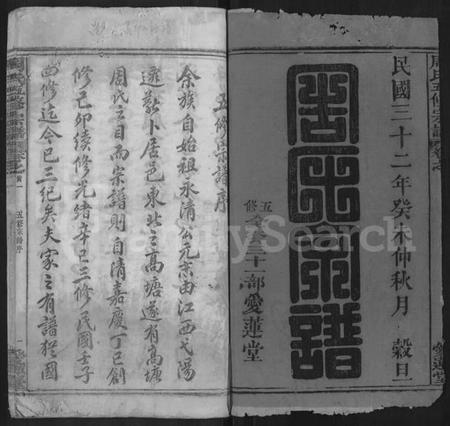 民國三十二年癸未仲秋月 穀旦
周氏宗譜
五修
三十一部愛蓮堂
周氏五修宗譜
愛蓮堂
五修宗譜序
余族自始祖永清公元末由江西弋陽
遷 卜居邑東北之高塘遂有高塘
周氏之目而宗譜則自清嘉慶丁巳創
修己卯續修光緒辛巳三修民國壬子
四修迄今已三紀矣夫家之有譜猶國
五修宗譜序
FamilySearch